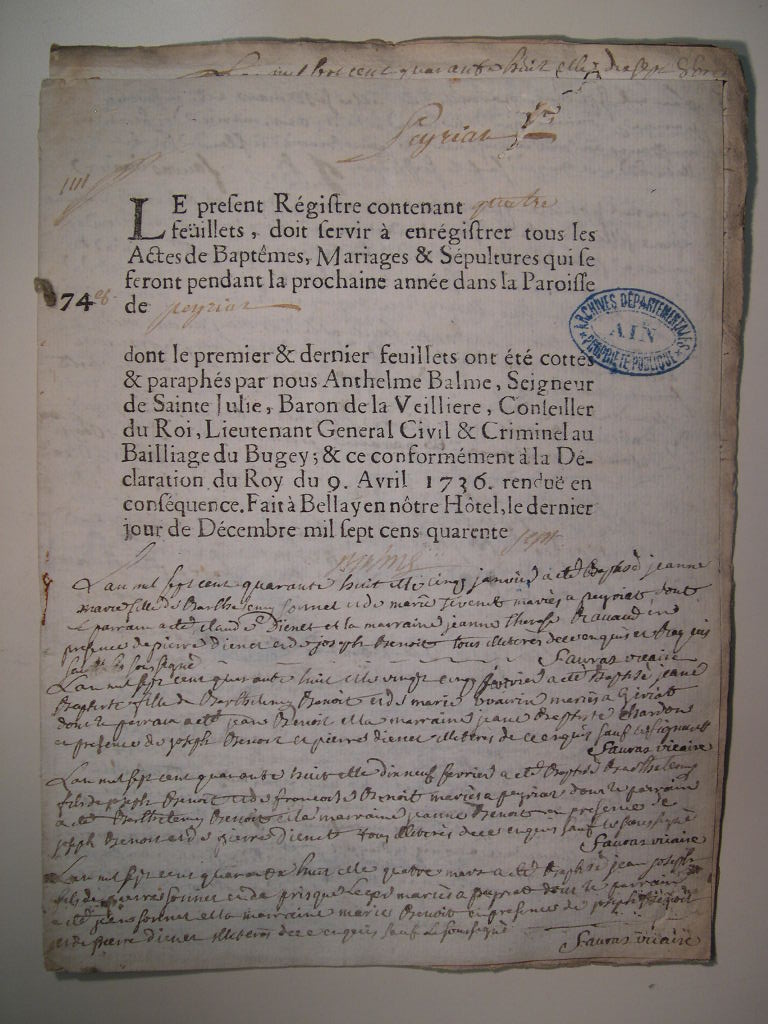 mil sept cent quarante huit elle
Peyriat
LE present Régistre contenant quatre
feüillets, doit servir à enrégistrer tous les
Actes de Baptêmes, Mariages & Sépultures qui se
feront pendant la prochaine année dans la Paroisse
74
de peyriat
ARCHIVES DÉPARTEMENTALES
AIN
PROPRIÉTÉ PUBLIQUE
dont le premier & dernier feuillets ont été cottés
& paraphés par nous Anthelme Balme, Seigneur
de Sainte Julie, Baron de la Veilliere, Conseiller
du Roi, Lieutenant General Civil & Criminel au
Bailliage du Bugey; & ce conformément à la Dé-
claration du Roy du 9. Avril 1736. renduë en
conséquence. Fait à Bellay en nôtre Hôtel, le dernier
jour de Décembre mil sept cens quarente sept
Balme
L'an mil sept cent quarante huit et le cinq janvier a eté Baptisé jeanne
marie fille de Barthelemy sonnet et de marie mariés a peyriat dont
le parrain a eté claude Dienet et la marraine jeanne therese en
presence de pierre dienet et de joseph Benoit tous illiteres de ce enquis et
sauf le soussigné Sauvas vicaire
L'an mil sept cent quarante huit et le vingt cinq février a eté Baptisé jeane
Baptiste fille de Barthelemy Benoit et de marie mariés a
dont le parrain a eté jean Benoit et la marraine jeane Baptiste chardon
en presence de joseph Benoit et pierre dienet illiteres de ce enquis sauf le signant
Sauvas vicaire
L'an mil sept cent quarante huit et le dixneuf fevrier a eté Baptisé Barthelemy
fils de joseph Benoit et de francoise Benoit mariés a peyriat dont le parrain
a eté Barthelemy Benoit et la marraine jeanne Benoit en presence de
joseph Benoit et de pierre dienet tous illiteres de ce enquis sauf le soussigné
Sauvas vicaire
L'an mil sept cent quarante huit et le quatre mars a eté Baptisé jean joseph
fils de pierre sonnet et de mariés a peyriat dont le parrain
a eté jean sonnet et la marraine marie Benoit en presence de joseph Benoit
et de pierre dienet illiteres de ce enquis sauf le soussigné
Sauvas vicaire